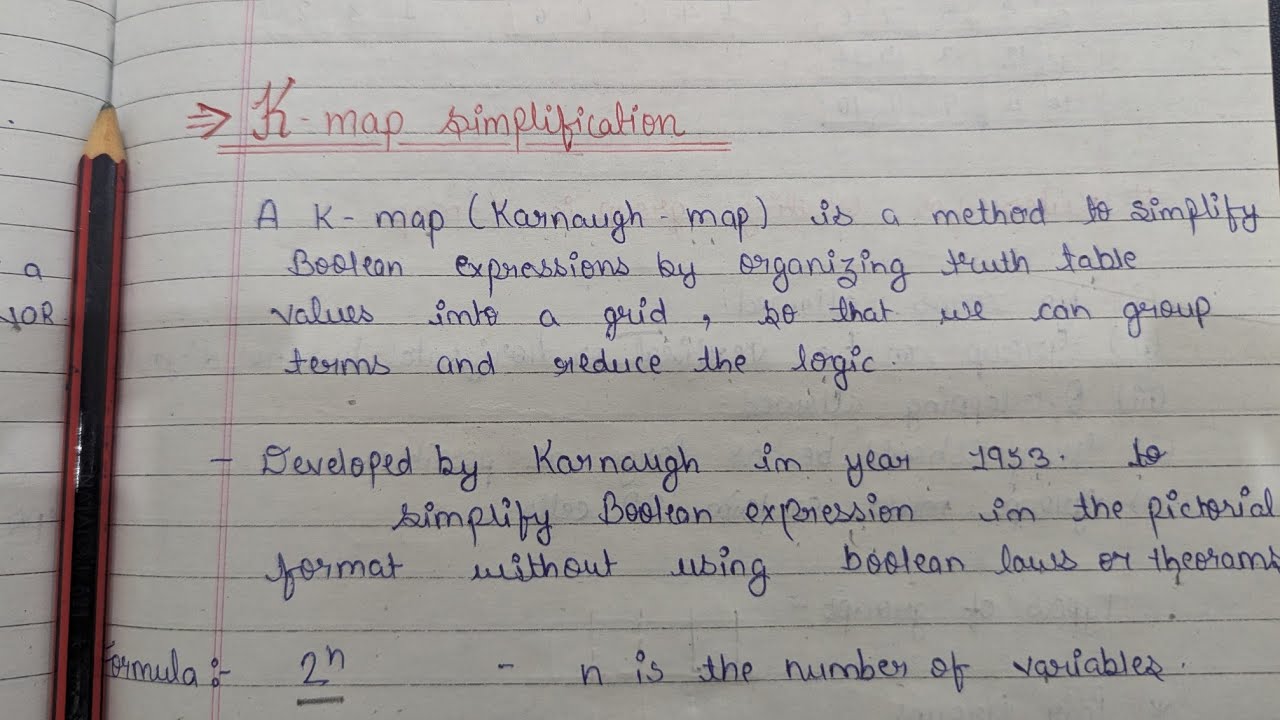 ⇒ K-map simplification
A K-map (Karnaugh-map) is a method to simplify
Boolean expressions by organizing truth table
values into a grid, so that we can group
terms and reduce the logic.
a
XOR
- Developed by Karnaugh in year 1953. to
simplify Boolean expression in the pictorial
format without using boolean laws or theorams
formula :- 2ⁿ - n is the number of variables.